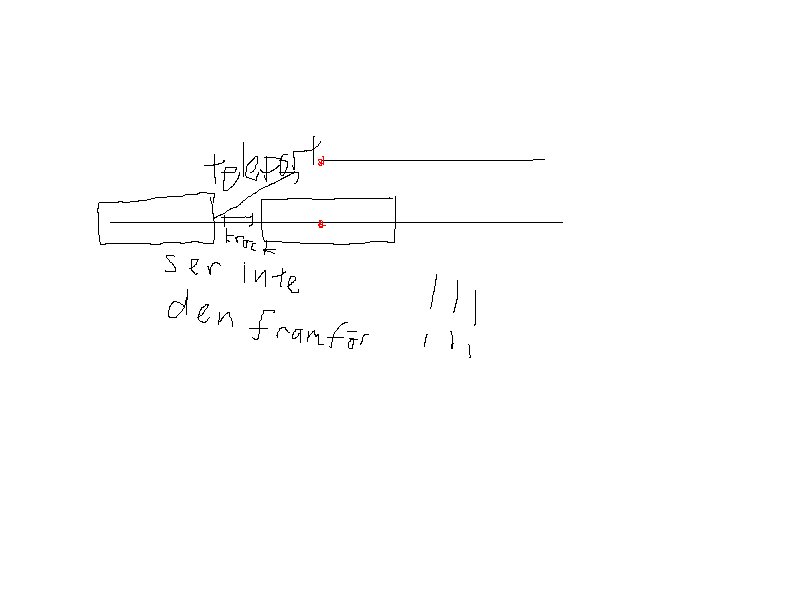 teleport
track
ser inte
den framför
!!!